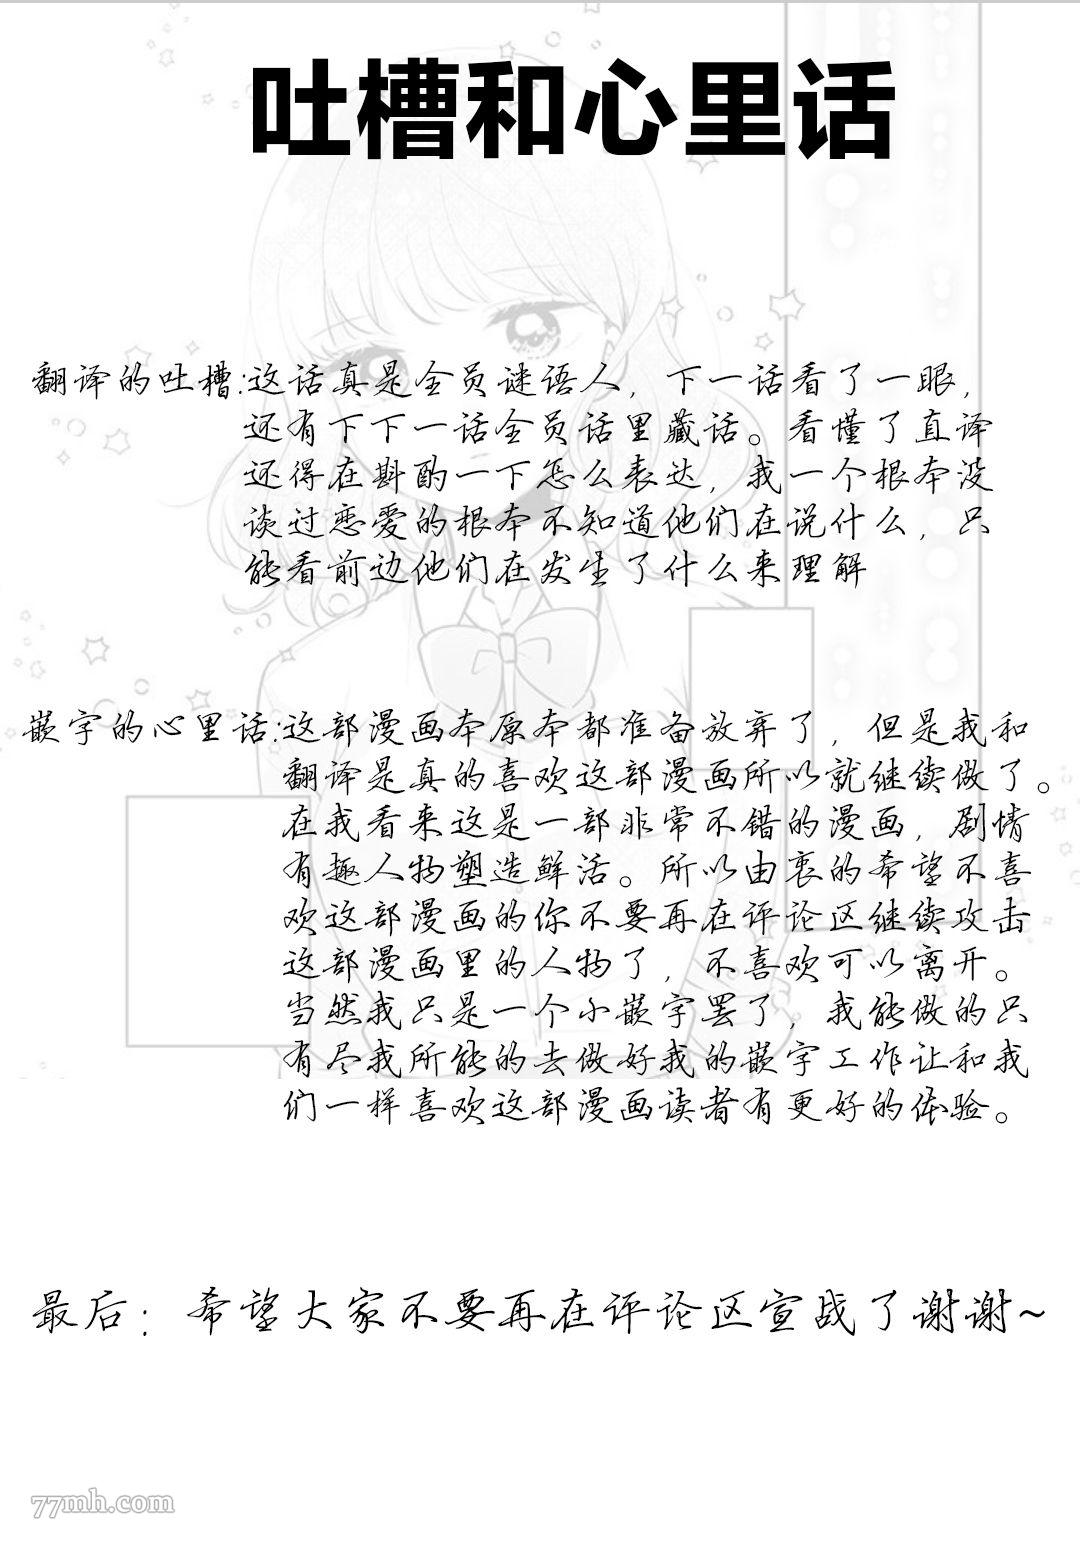 吐槽和心里话
翻译的吐槽:这话真是全员谜语人，下一话看了一眼，
还有下下一话全员话里藏话。看懂了直译
还得在斟酌一下怎么表达，我一个根本没
谈过恋爱的根本不知道他们在说什么，只
能看前边他们在发生了什么来理解
嵌字的心里话:这部漫画本原本都准备放弃了，但是我和
翻译是真的喜欢这部漫画所以就继续做了。
在我看来这是一部非常不错的漫画，剧情
有趣人物塑造鲜活。所以由衷的希望不喜
欢这部漫画的你不要再在评论区继续攻击
这部漫画里的人物了，不喜欢可以离开。
当然我只是一个小嵌字罢了，我能做的只
有尽我所能的去做好我的嵌字工作让和我
们一样喜欢这部漫画读者有更好的体验。
最后：希望大家不要再在评论区宣战了谢谢~
77mh.com